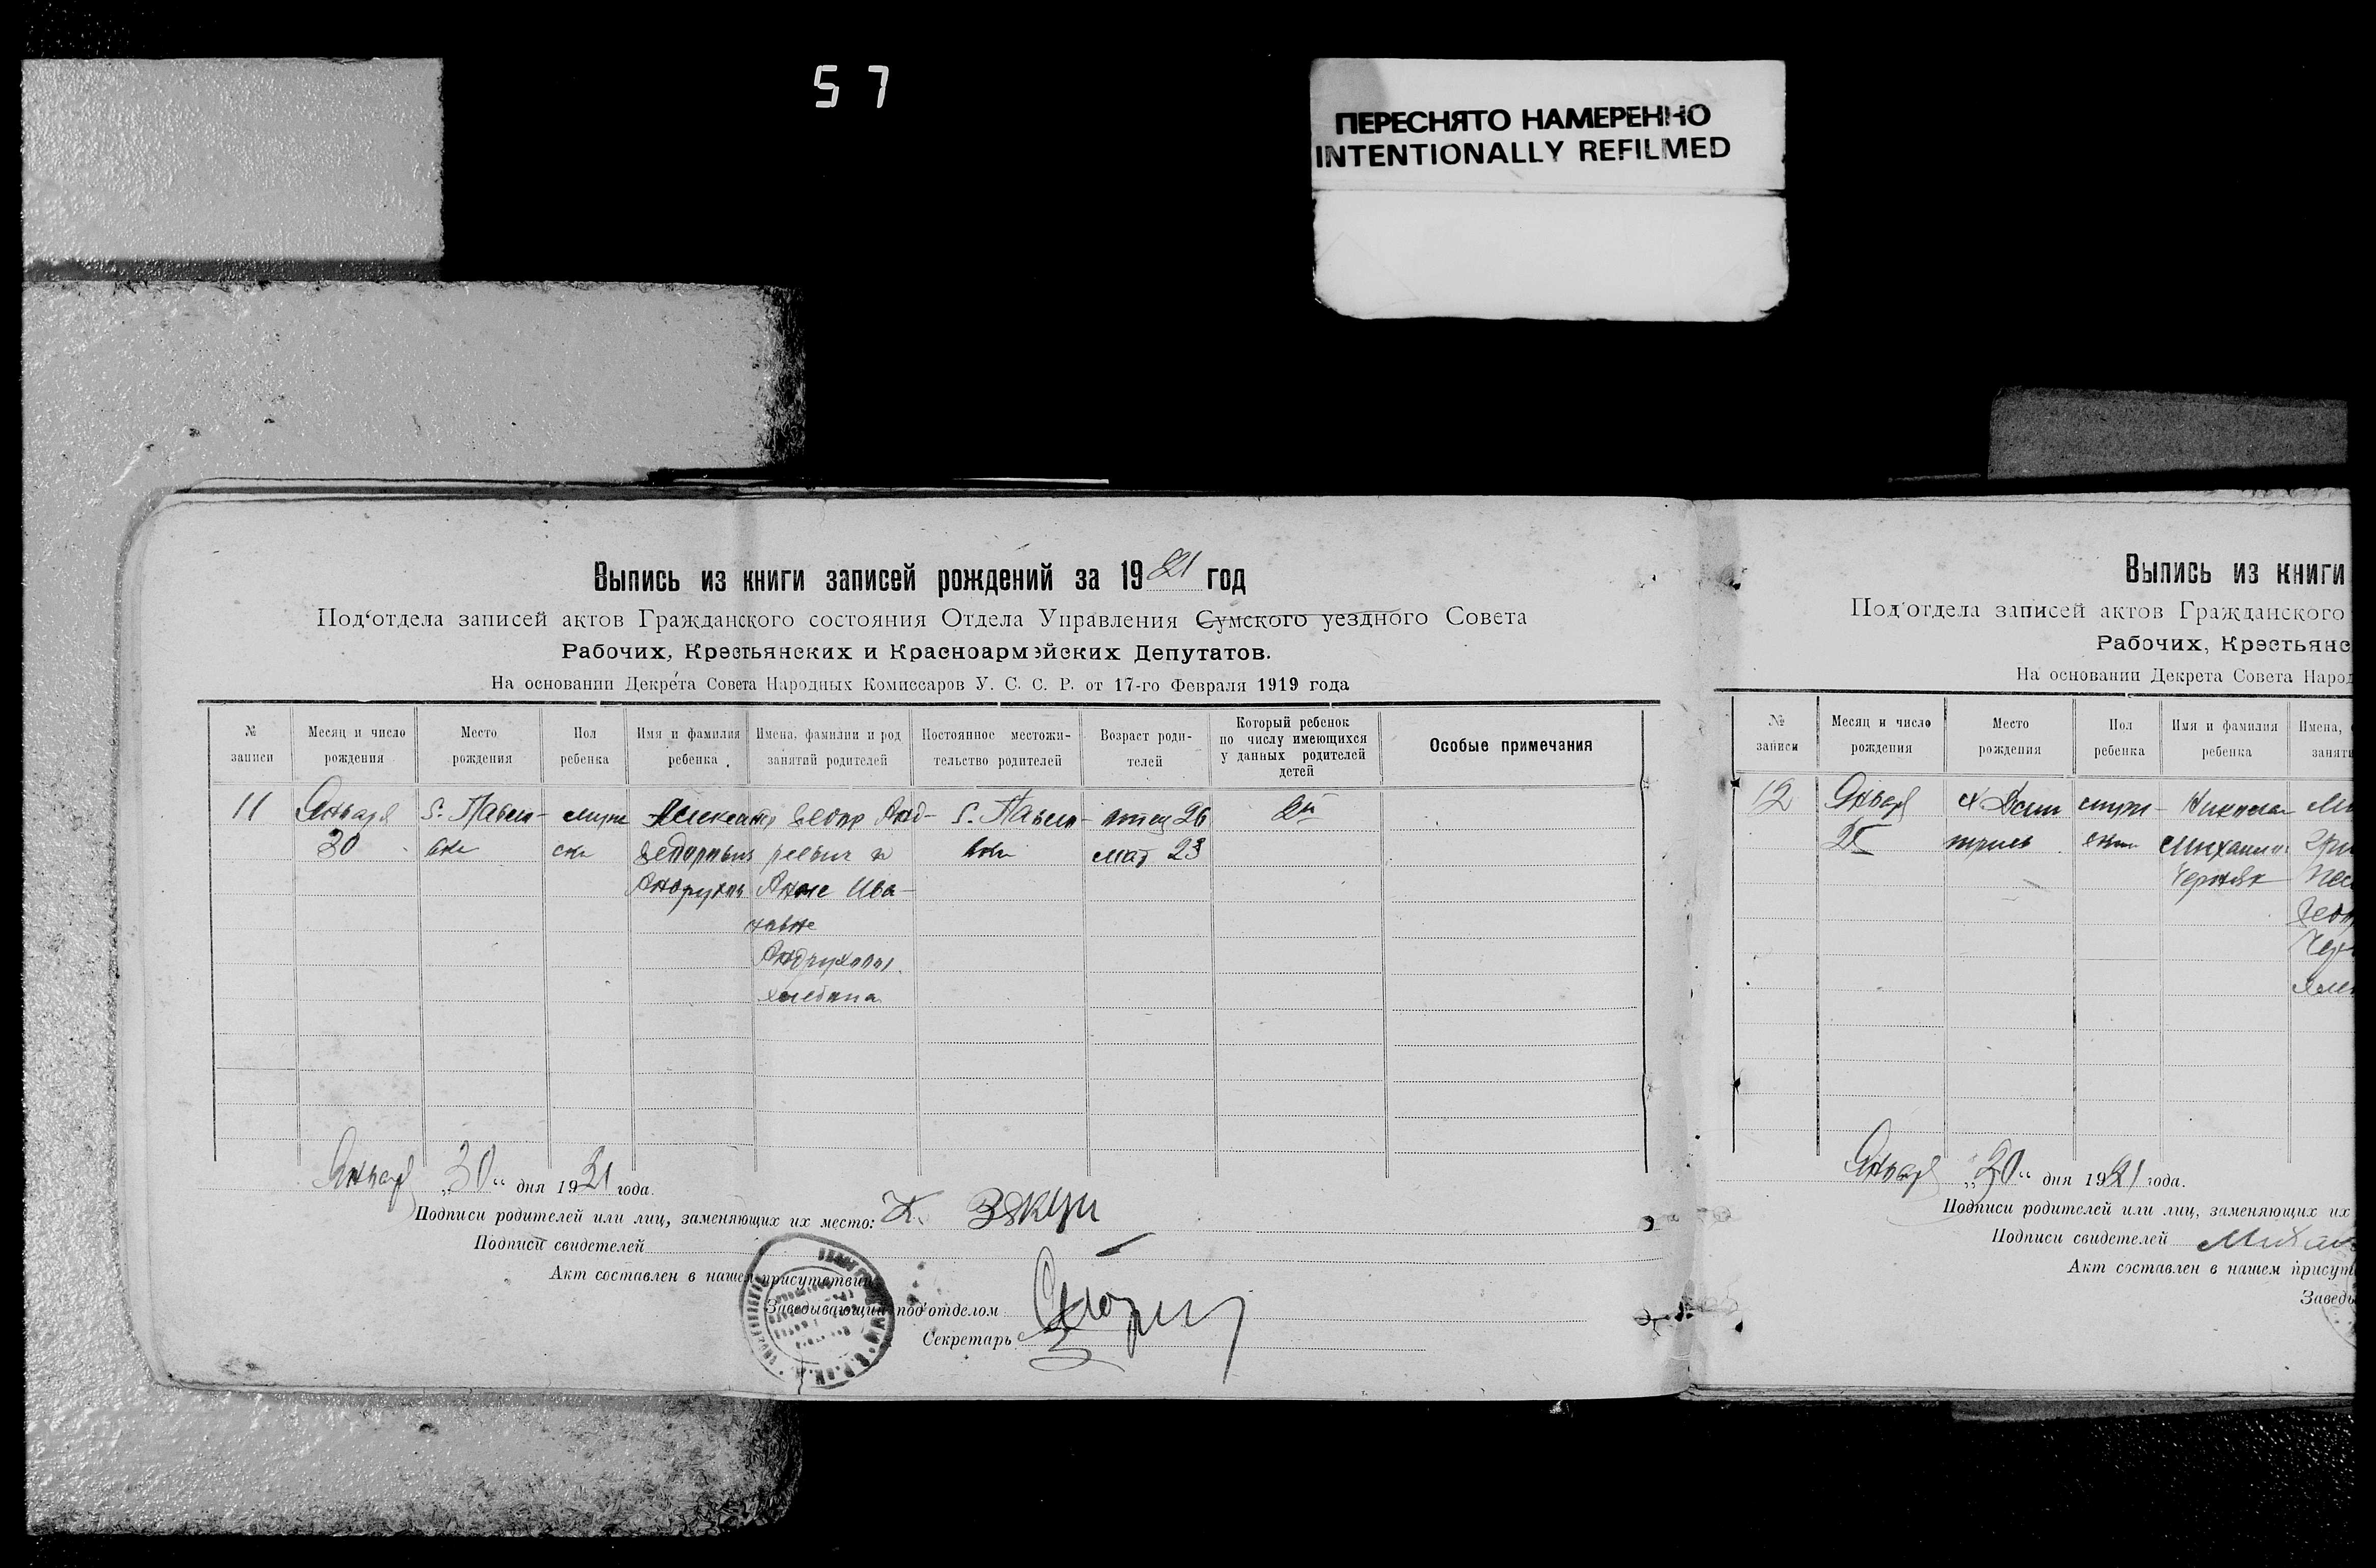 57
ПЕРЕСНЯТО НАМЕРЕННО
INTENTIONALLY REFILMED
Выпись из книги записей рождений за 1921 год
Под‘отдела записей актов Гражданского состояния Отдела Управления Сумского уездного Совета
Рабочих, Крестьянских и Красноармейских Депутатов.
На основании Декрета Совета Народных Комиссаров У. С. С. Р. от 17-го Февраля 1919 года
№ записи
Месяц и число рождения
Место рождения
Пол ребенка
Имя и фамилия ребенка
Имена, фамилии и род занятий родителей
Постоянное местожи-тельство родителей
Возраст роди-телей
Который ребенок по числу имеющихся у данных родителей детей
Особые примечания
11 Января С. Павло- муж Александр Федор Анд- С. Павло- отец 26 2й
30 ска Федорович реевич и мат 23
Андрухов Анне Ива-
новне
Андруховы
Январ „30“ дня 1921 года.
Подписи родителей или лиц, заменяющих их место: К. Зякун
Подписи свидетелей
Акт составлен в нашем присутствии
Заведывающий под‘отделом
Секретарь
Выпись из книги
Под‘отдела записей актов Гражданского
Рабочих, Крестьянс
На основании Декрета Совета Народ
№ записи
Месяц и число рождения
Место рождения
Пол ребенка
Имя и фамилия ребенка
Имена,
заняти
12 Январ муж- Николай
25 Михайлов
Черняк
Январ „30“ дня 1921 года.
Подписи родителей или лиц, заменяющих их
Подписи свидетелей
Акт составлен в нашем присут
Заведы